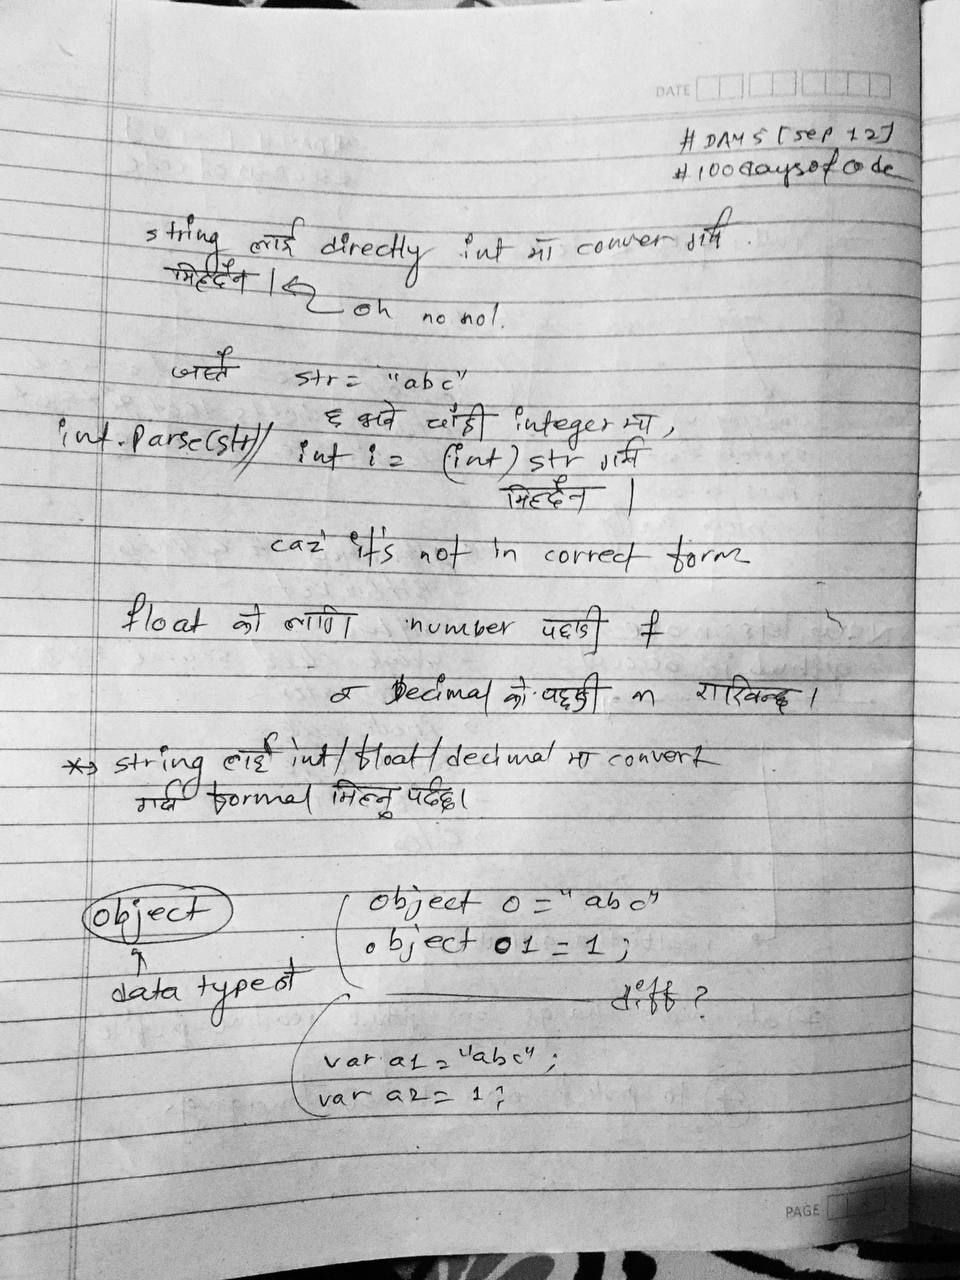 DATE
# DAY 5 [sep 12]
# 100daysofcode
string लाई directly int मा conver गर्न
मिल्दैन । oh no no!.
जस्तै str = "abc"
छ भने यॉही integer मा,
int.parse(str)// int i = (int) str गर्न
मिल्दैन |
caz it's not in correct form
float को लागि number पछाडी f
र Decimal को पछाडी m राखिन्छ ।
*→ string लाई int/float/decimal मा convert
गर्न formal मिल्नु पर्दछ।
object
object o = "abc"
object o1 = 1;
data type हो
diff ?
var a1 = "abc";
var a2 = 1;
PAGE